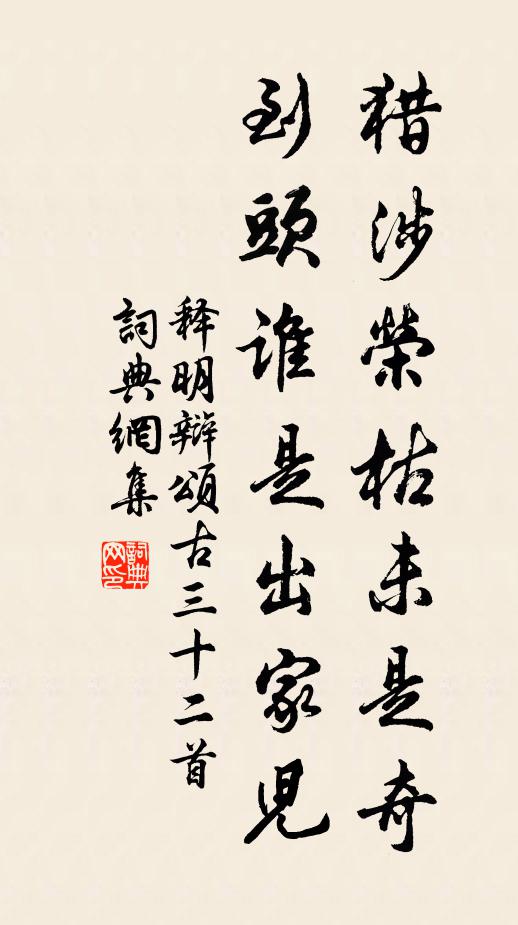 猎涉榮枯未是奇
到頭誰是出家児
释明辯頌古三十二首
詞典網集
詞典网印